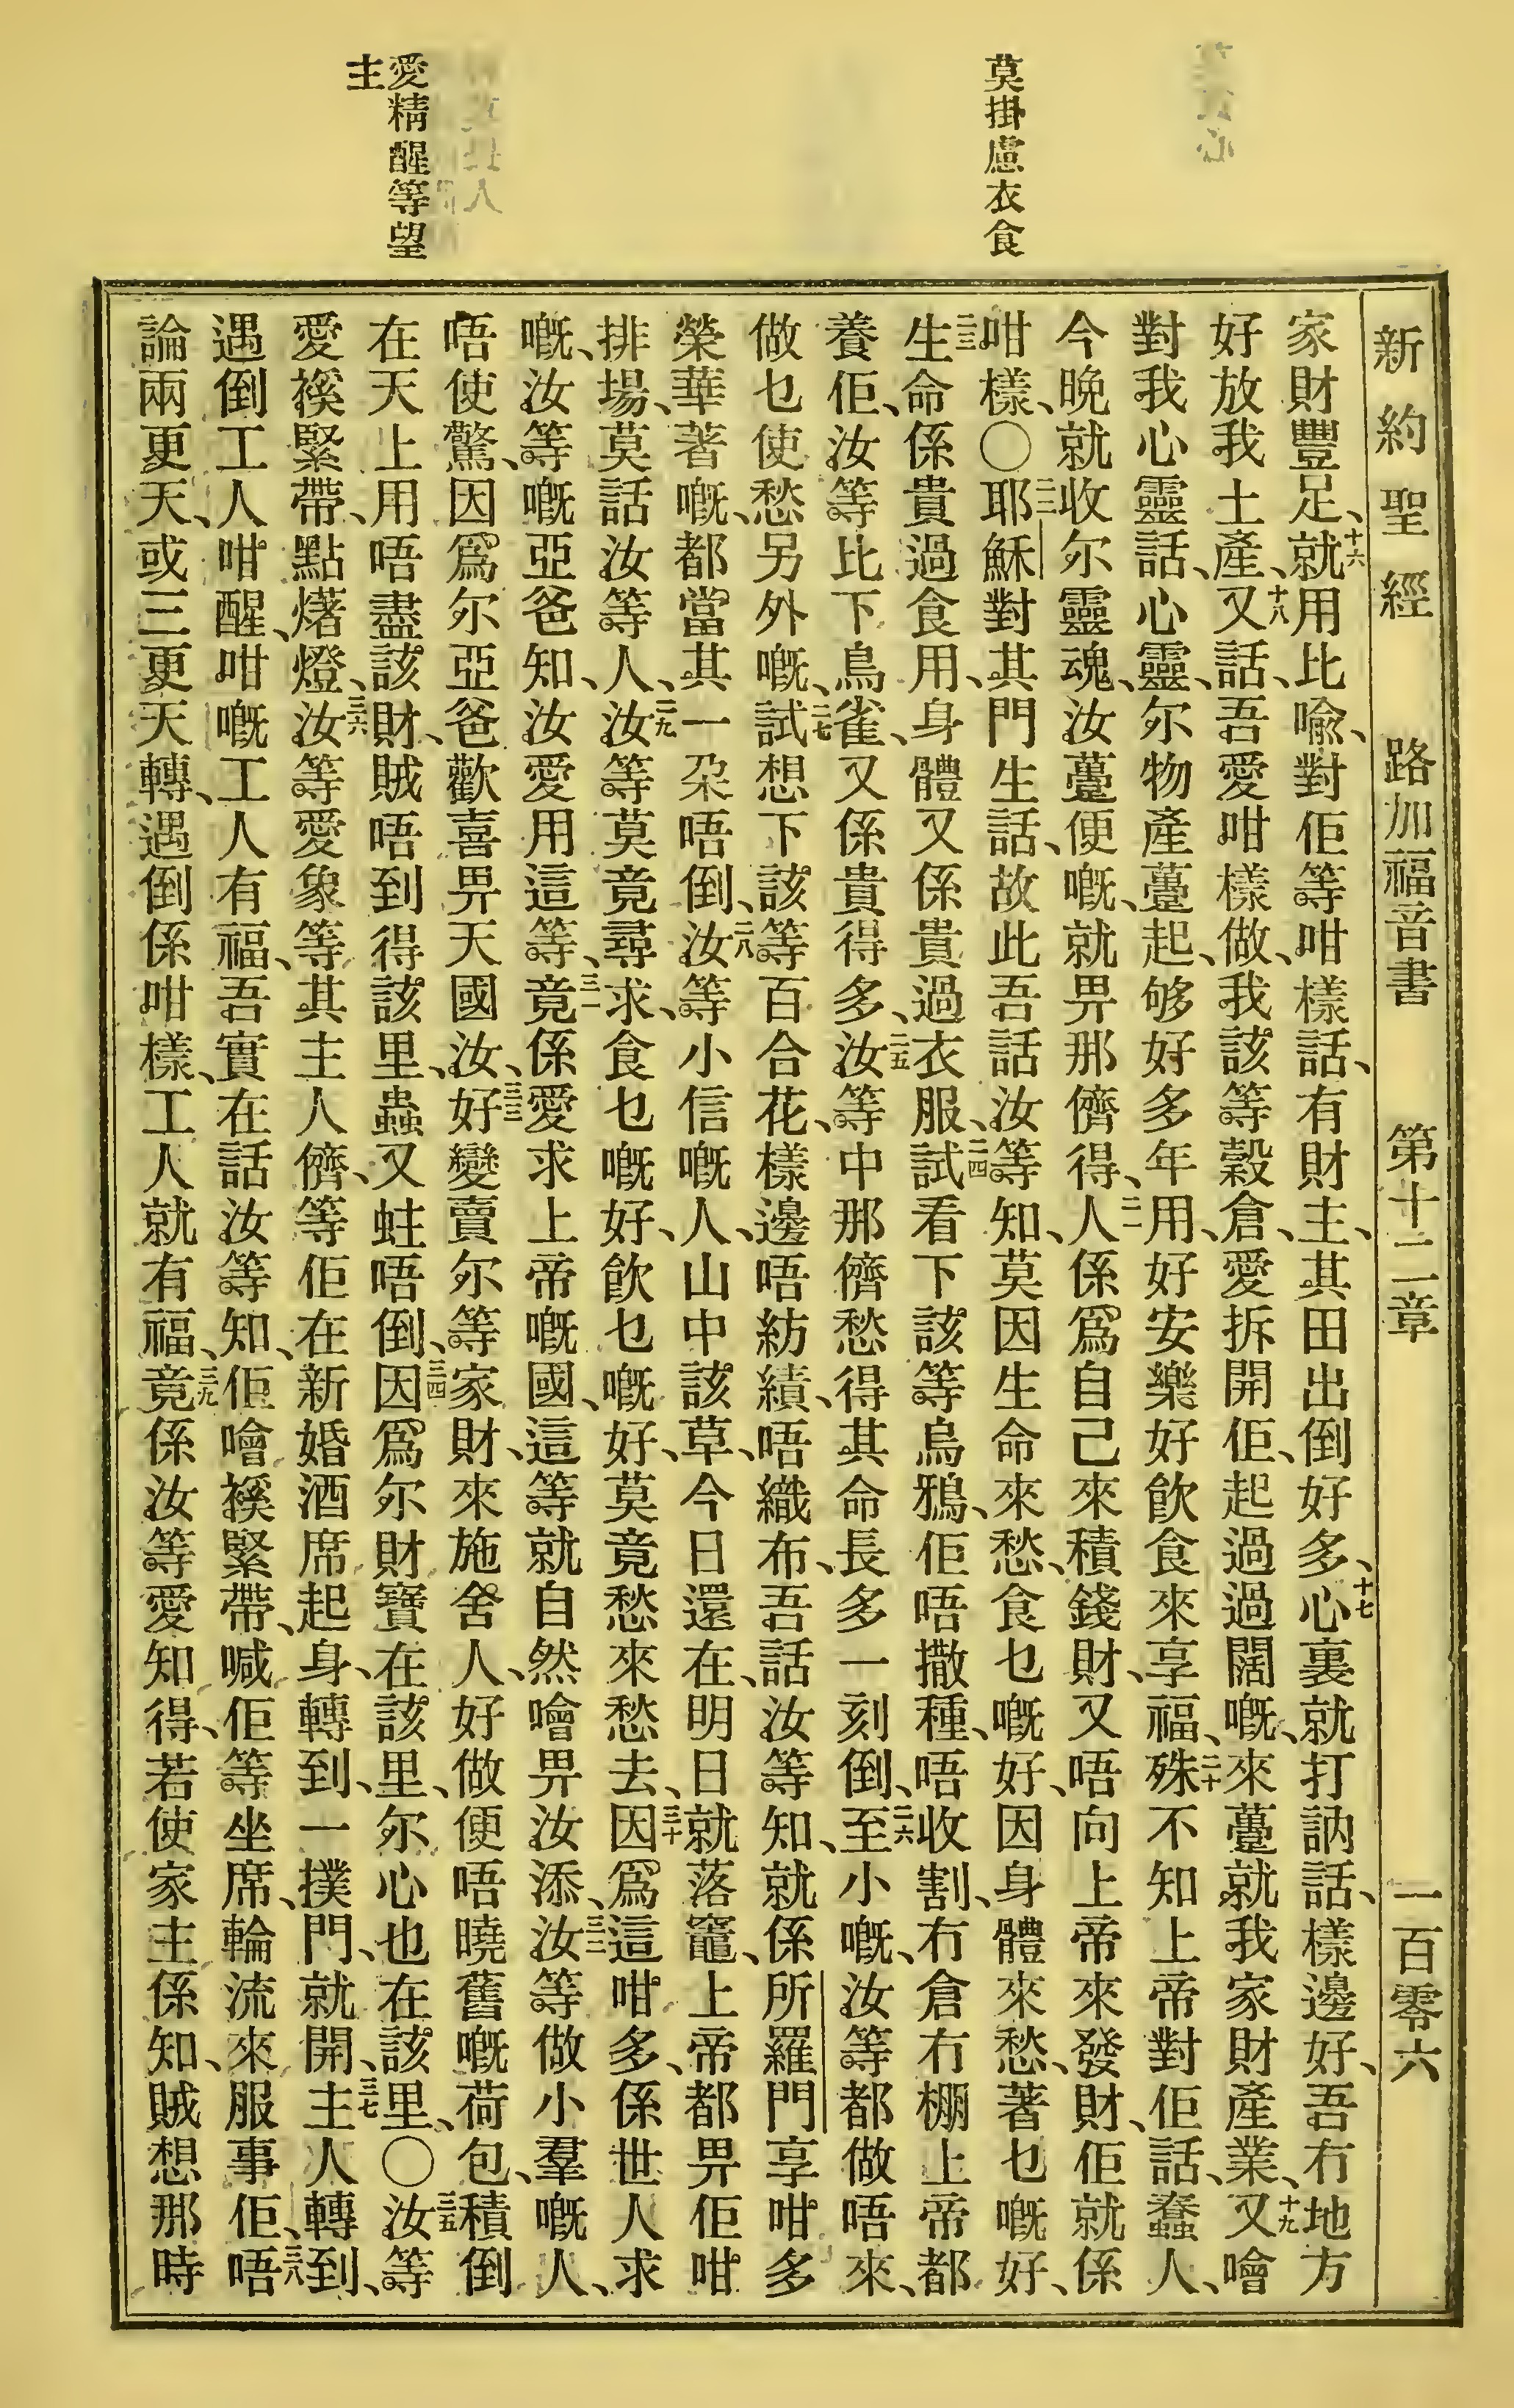 莫掛慮衣食
愛精醒等望
主
新約聖經 路加福音書 第十二章 一百零六
家財豐足、十六就用比喩、對佢等咁樣話、有財主、其田出倒好多、十七心裏就打訥話、樣邊好、吾冇地方
好放我土產、十八又話、吾愛咁樣做、我該等穀倉、愛拆開佢、起過過闊嘅、來躉就我家財產業、十九又噲
對我心靈話、心靈、尔物產躉起、够好多年用、好安樂好飮食來享福、二十殊不知上帝對佢話、蠢人、
今晚就收尔靈魂、汝躉便嘅、就畀那儕得、二一人係爲自己來積錢財、又唔向上帝來發財、佢就係
咁樣、〇二二耶穌對其門生話、故此吾話汝等知、莫因生命來愁、食乜嘅好、因身體來愁、著乜嘅好、
二三生命係貴過食用、身體又係貴過衣服、二四試看下該等烏鴉、佢唔撒種、唔收割、冇倉冇棚、上帝都
養佢、汝等比下鳥雀、又係貴得多、二五汝等中那儕愁得其命長多一刻倒、二六至小嘅、汝等都做唔來、
做乜使愁另外嘅、二七試想下該等百合花、樣邊唔紡績、唔織布、吾話汝等知、就係所羅門享咁多
榮華著嘅、都當其一朶唔倒、二八汝等小信嘅人、山中該草、今日還在、明日就落竈、上帝都畀佢咁
排場、莫話汝等人、二九汝等莫竟尋求、食乜嘅好、飮乜嘅好、莫竟愁來愁去、三十因爲這咁多、係世人求
嘅、汝等嘅亞爸知、汝愛用這等、三一竟係愛求上帝嘅國、這等就自然噲畀汝添、三二汝等做小羣嘅人、
唔使驚、因爲尔亞爸歡喜畀天國汝、三三好變賣尔等家財、來施舍人、好做便唔曉舊嘅荷包、積倒
在天上用唔盡該財、賊唔到得該里、蟲又蛀唔倒、三四因爲尔財寶在該里、尔心也在該里、〇三五汝等
愛𧜵緊帶、點𤏸燈、三六汝等愛象等其主人儕、等佢在新婚酒席起身、轉到、一撲門、就開、三七主人轉到、
遇倒工人咁醒、咁嘅工人有福、吾實在話汝等知、佢噲𧜵緊帶、喊佢等坐席、輪流來服事佢、三八唔
論兩更天、或三更天轉、遇倒係咁樣、工人就有福、三九竟係汝等愛知得、若使家主係知、賊想那時